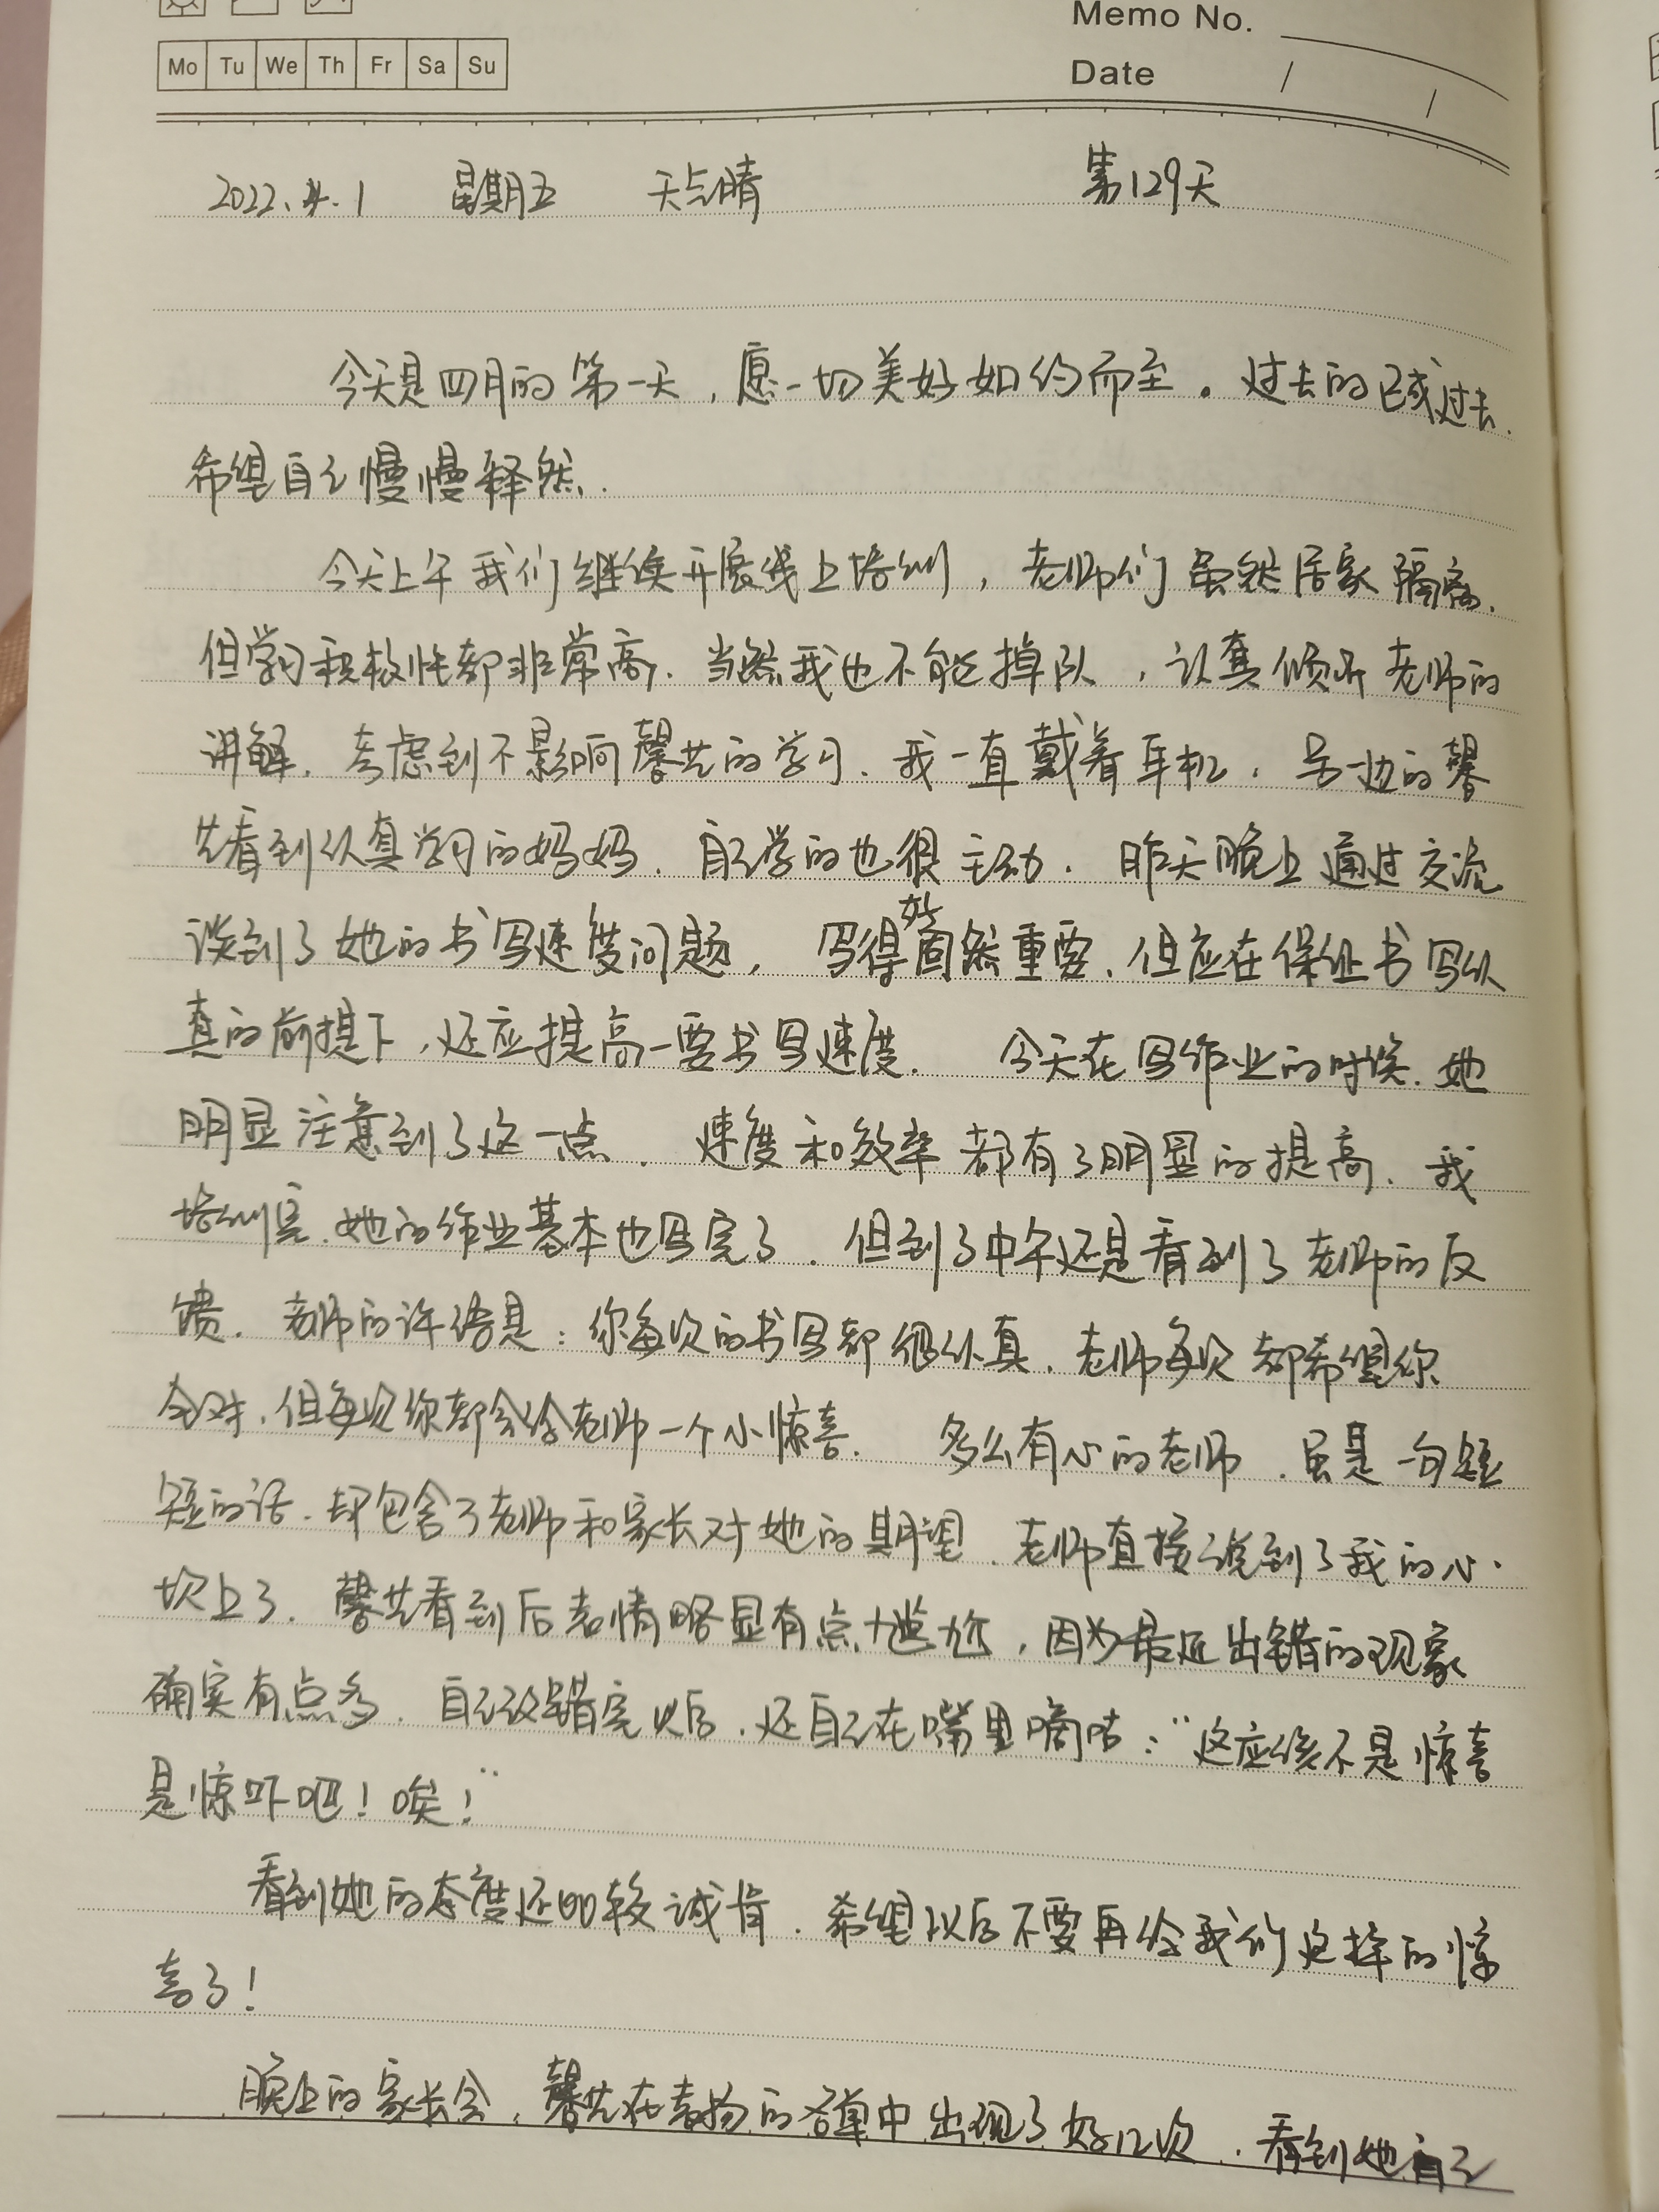 Memo No.
Mo Tu We Th Fr Sa Su
Date / /
2022.4.1 星期五 天气晴 第129天
今天是四月的第一天，愿一切美好如约而至。过去的已成过去.
希望自己慢慢释然.
今天上午我们继续开展线上培训，老师们虽然居家隔离.
但学习积极性都非常高.当然我也不能掉队，认真倾听老师的
讲解.考虑到不影响馨艺的学习.我一直戴着耳机.另一边的馨
艺看到认真学习的妈妈.自己学的也很主动.昨天晚上通过交流
谈到了她的书写速度问题，写得好固然重要.但应在保证书写认
真的前提下,还应提高一要书写速度.今天在写作业的时候.她
明显注意到了这一点.速度和效率都有了明显的提高.我
培训完.她的作业基本也写完了.但到了中午还是看到了老师的反
馈.老师的评语是：你每次的书写都很认真.老师每次都希望你
全对.但每次你都会给老师一个小惊喜.多么有心的老师.虽是一句短
短的话.却包含了老师和家长对她的期望.老师直接说到了我的心
坎上了.馨艺看到后表情略显有点尴尬，因为最近出错的现象
确实有点多.自己改错完以后.还自己在嘴里嘀咕："这应该不是惊喜
是惊吓吧！唉！"
看到她的态度还比较诚肯.希望以后不要再给我们这样的惊
喜了！
晚上的家长会，馨艺在表扬的名单中出现了好几次.看到她自己